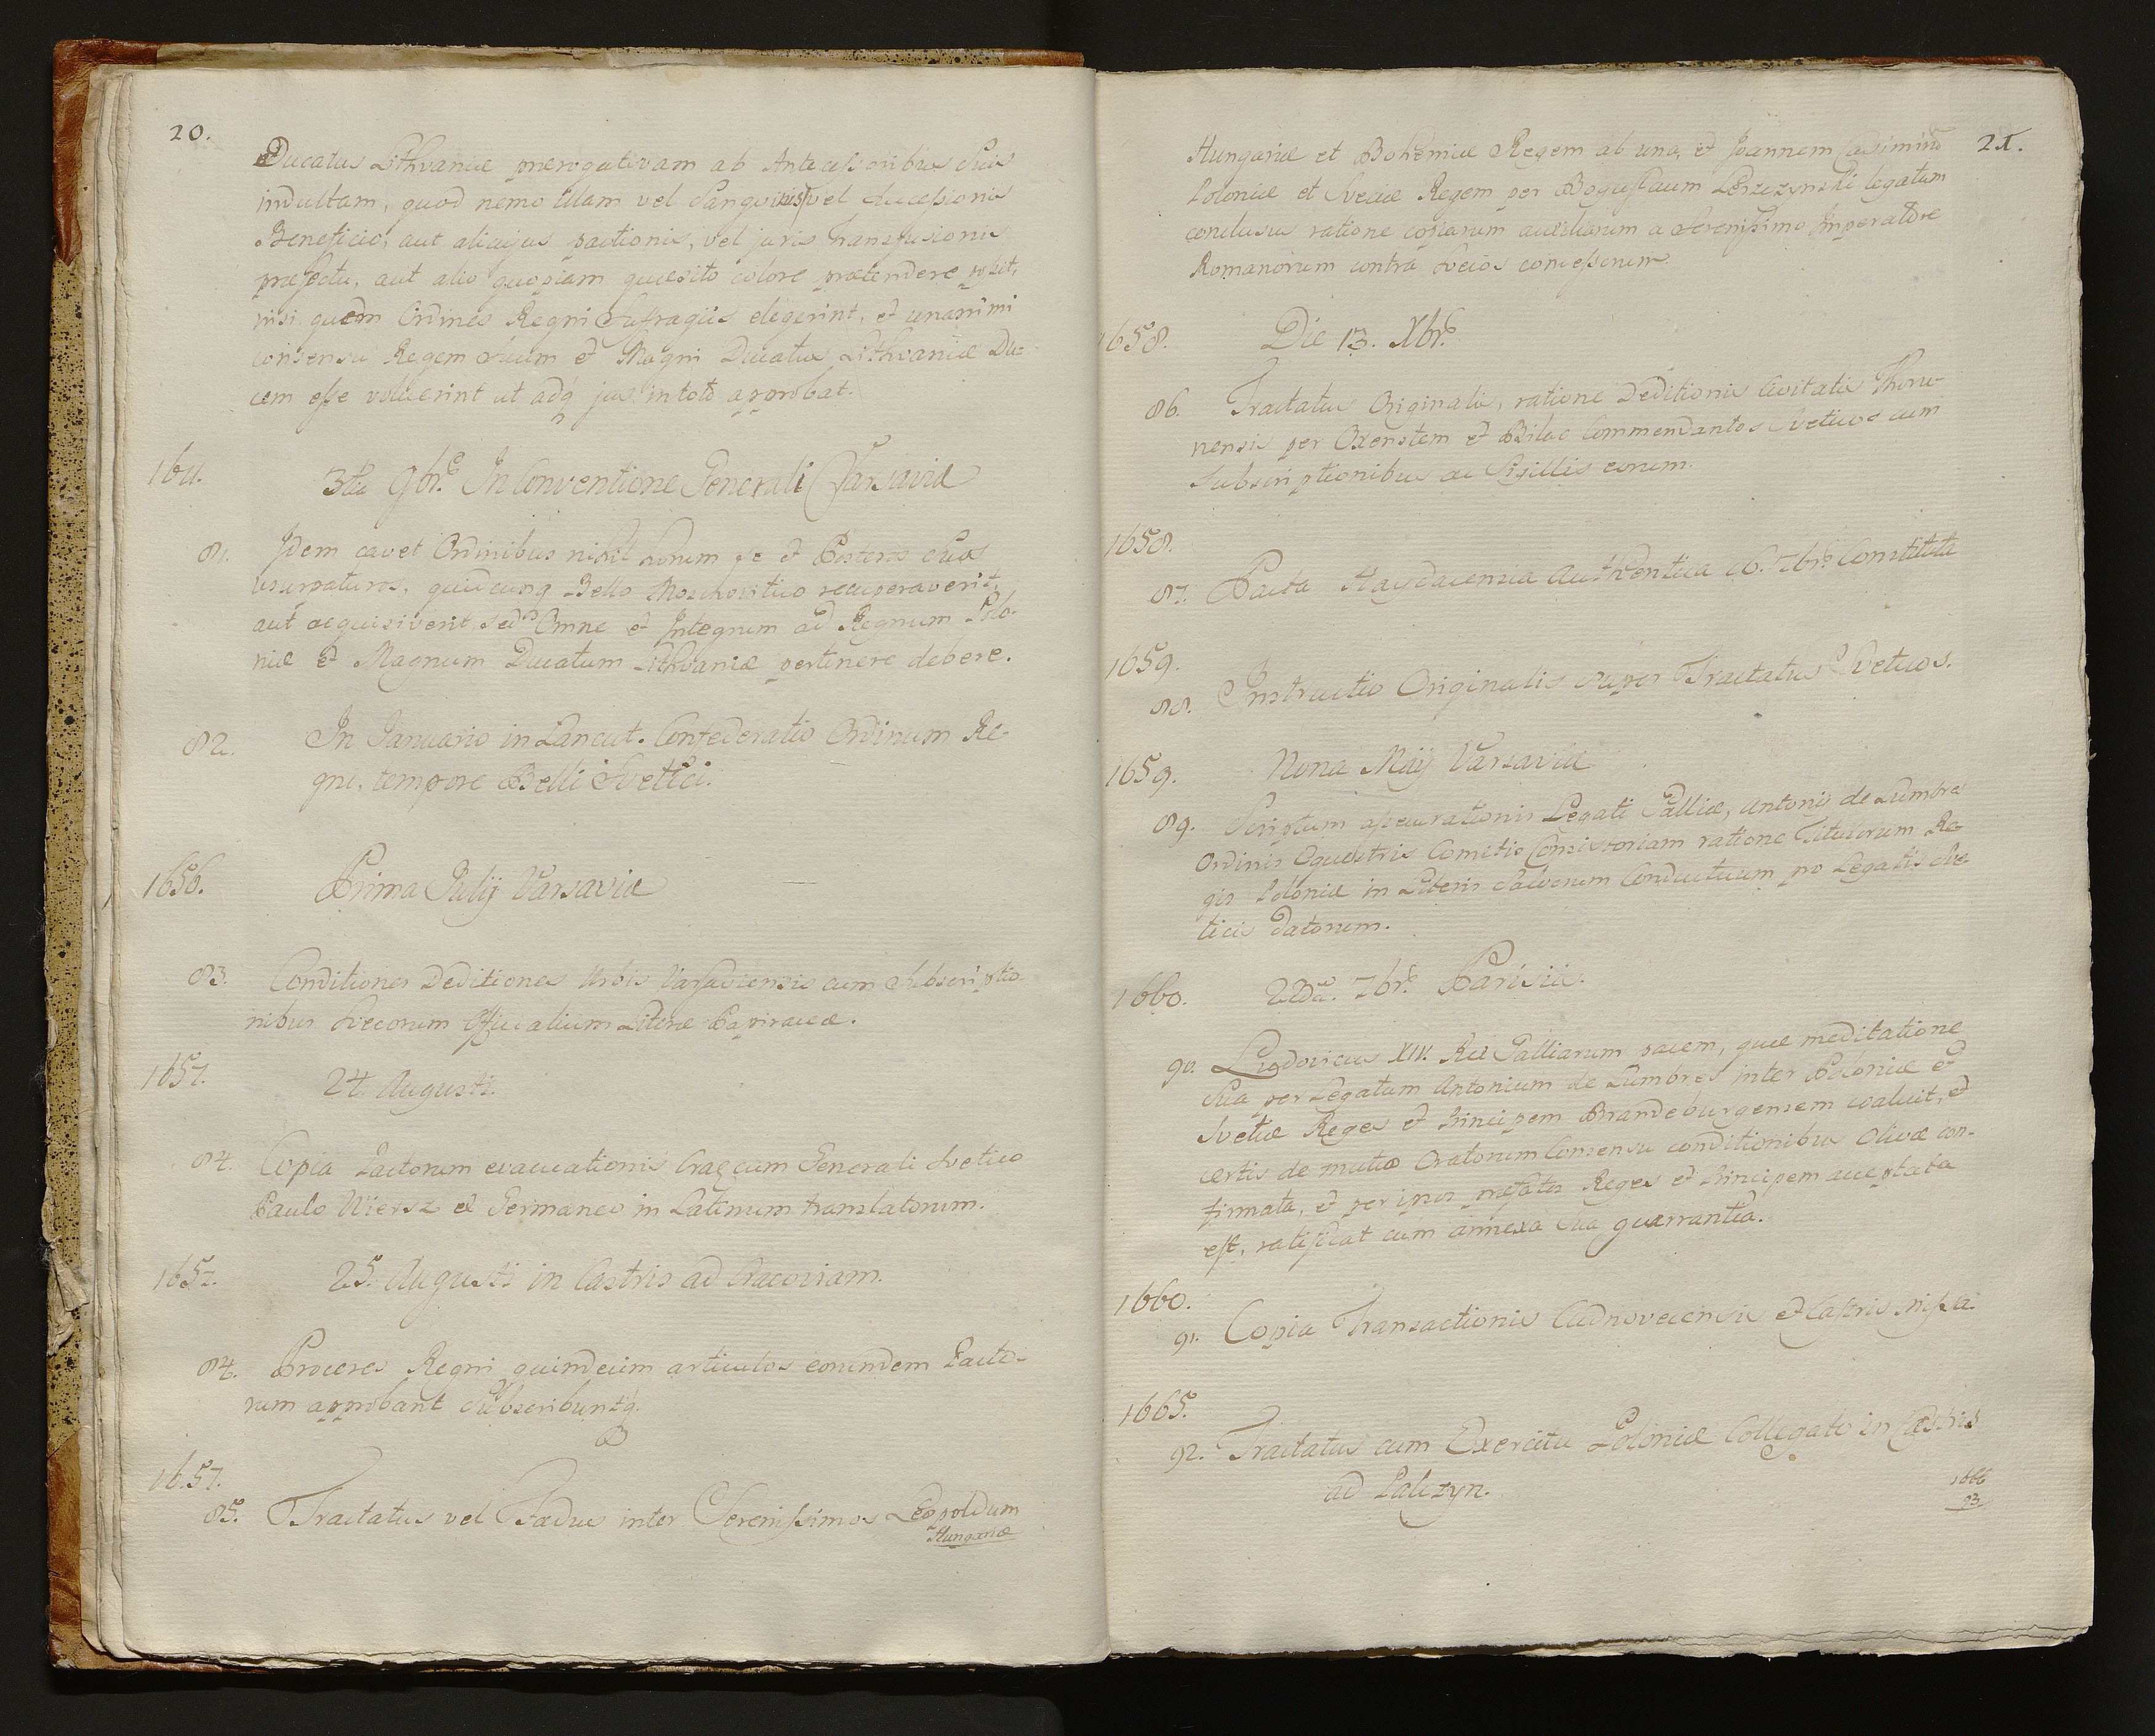 20.
Ducatus Lithvaniæ prærogativam ab Antecessoribus Suis
indultam, quod nemo illam vel Sanguinis vel Successionis
Beneficio, aut alicujus pactionis, vel juris Transfusionis
præfectu, aut alio quopiam quæsito colore prætendere possit,
nisi quem Ordines Regni Sufragiis elegerint, et unanimi
consensu Regem suum et Magni Ducatus Lithvaniæ Du-
cem esse voluerint ut adq jus in toto approbat.
1611.
3tia 9br. In Conventione Generali Varsaviæ
81. Idem cavet Ordinibus nihil horum se et Posteros Suos
usurpaturos, quidcunq Bello Moschovitico recuperaverit
aut acquisiverit, sed Omne et Integrum ad Regnum Polo-
niæ et Magnum Ducatum Lithvaniæ pertinere debere.
82. In Januario in Lancut. Confederatio Ordinum Re-
gni, tempore Belli Svetici.
1656. Prima Julij Varsaviæ
83. Conditiones Deditiones Urbis Varsaviensis cum Subscriptio
nibus Svecorum Officialium Literæ Papiraceæ.
1657. 24. Augusti.
84. Copia Pactorum evacuationis Crac cum Generali Svetico
Paulo Wiersz ex Germaneo in Latinum translatorum.
1657. 25. Augusti in Castris ad Cracoviam.
84. Proceres Regni quindecim articulos eorundem Pacto-
rum approbant subscribuntq.
1657.
85. Tractatus vel Fædus inter Serenissimos Leopoldum
Hungariæ
21.
Hungariæ et Bohemiæ Regem ab una, et Joannem Casimirū
Poloniæ et Sveciæ Regem per Boguslaum Leszczynski legatum
conclusus ratione copiarum auxiliarum a Serenissimo Imperatore
Romanorum contra Svecos concessarum
1658. Die 13. Xbr.
86. Tractatus Originalis, ratione Deditionis Civitatis Thoru-
nensis per Oxenstern et Bilac Commendantos Sveticos cum
Subscriptionibus ac Sigillis eorum.
1658.
87. Pacta Haydacensia authentica 16. 7br. Constituta
1659.
88. Instructio Originalis super Tractatus Sveticos.
1659. Nona Maij Varsaviæ
89. Scriptum assecurationis Legati Galliæ, Antonij de Lumbres
Ordinis Equestris Comitis Consistoriam ratione Titulorum Re-
gis Poloniæ in Literis Salvorum Conductuum pro Legatis Sve-
ticis datorum.
1660. 22da. 7br. Parisiis.
90. Ludovicus XIV. Rex Galliarum pacem, quæ meditatione
Sua per Legatum Antonium de Lumbres inter Poloniæ et
Svetiæ Reges et Principem Brandeburgensem coaluit, et
certis de mutuo Oratorum Consensu conditionibus Olivæ con-
firmata, et per ipsos præfatos Reges et Principem acceptata
est, ratificat cum annexa Sua guarrantia.
1660.
91. Copia Transactionis Cudnoveiensis et Castris missa.
1665.
92. Tractatus cum Exercitu Poloniæ Collegato in Castris
ad Palczyn.
1666
93